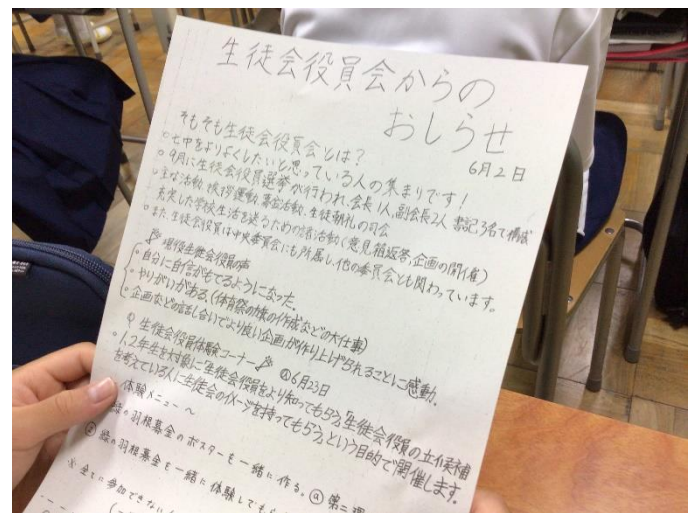 生徒会役員会からの
おしらせ
6月2日
そもそも生徒会役員会とは?
○七中をよりよくしたいと思っている人の集まりです!
○9月に生徒会役員選挙が行われ、会長1人、副会長2人、書記3名で構成
○主な活動、挨拶運動、募金活動、生徒朝礼の司会
充実した学校生活を送るための諸活動(意見箱返答、企画の開催)
○また、生徒会役員は中央委員会にも所属し、他の委員会とも関わっています。
現役生徒会役員の声
○自分に自信がもてるようになった。
○やりがいがある。(体育祭の旗の作成などの大仕事)
○企画などの話し合いでより良い企画が作り上げられることに感動。
生徒会役員体験コーナー @6月23日
○1、2年生を対象に「生徒会役員をより知ってもらう。」「生徒会役員の立候補
を考えている人に生徒会のイメージを持ってもらう。」という目的で開催します。
体験メニュー〜
緑の羽根募金のポスターを一緒に作る。@第二理
②緑の羽根募金を一緒に体験しても
※全てに参加できない